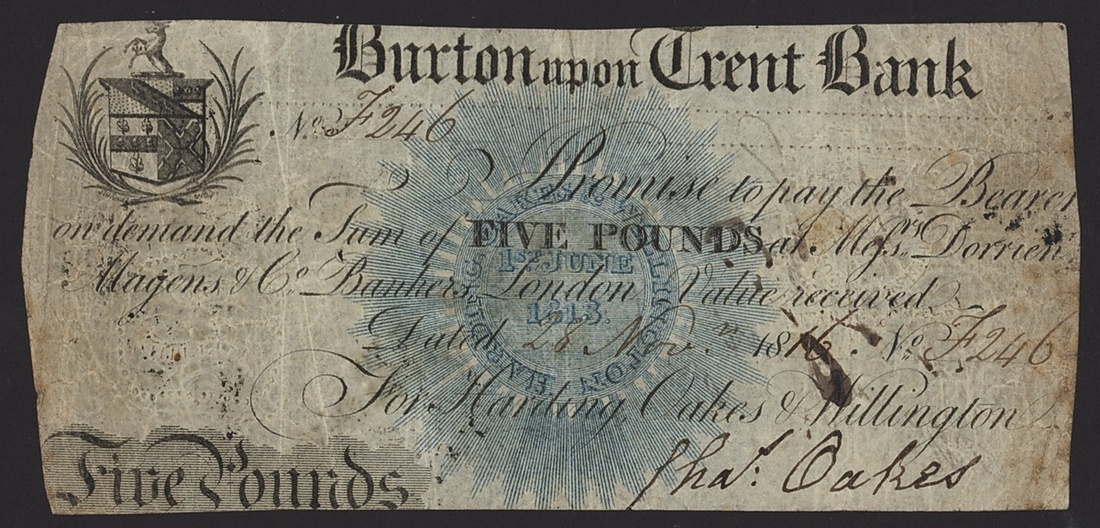 Burton upon Trent Bank
No. F246
Promise to pay the Bearer
on demand the Sum of FIVE POUNDS at Messrs. Dorrien
Magens & Co. Bankers London Value received
Dated 28 Novr. 1816. No. F246
For Harding Oakes & Willington
Chas. Oakes
Five Pounds
HARDING OAKES & WILLINGTON
1ST. JUNE
1813.
BURTON